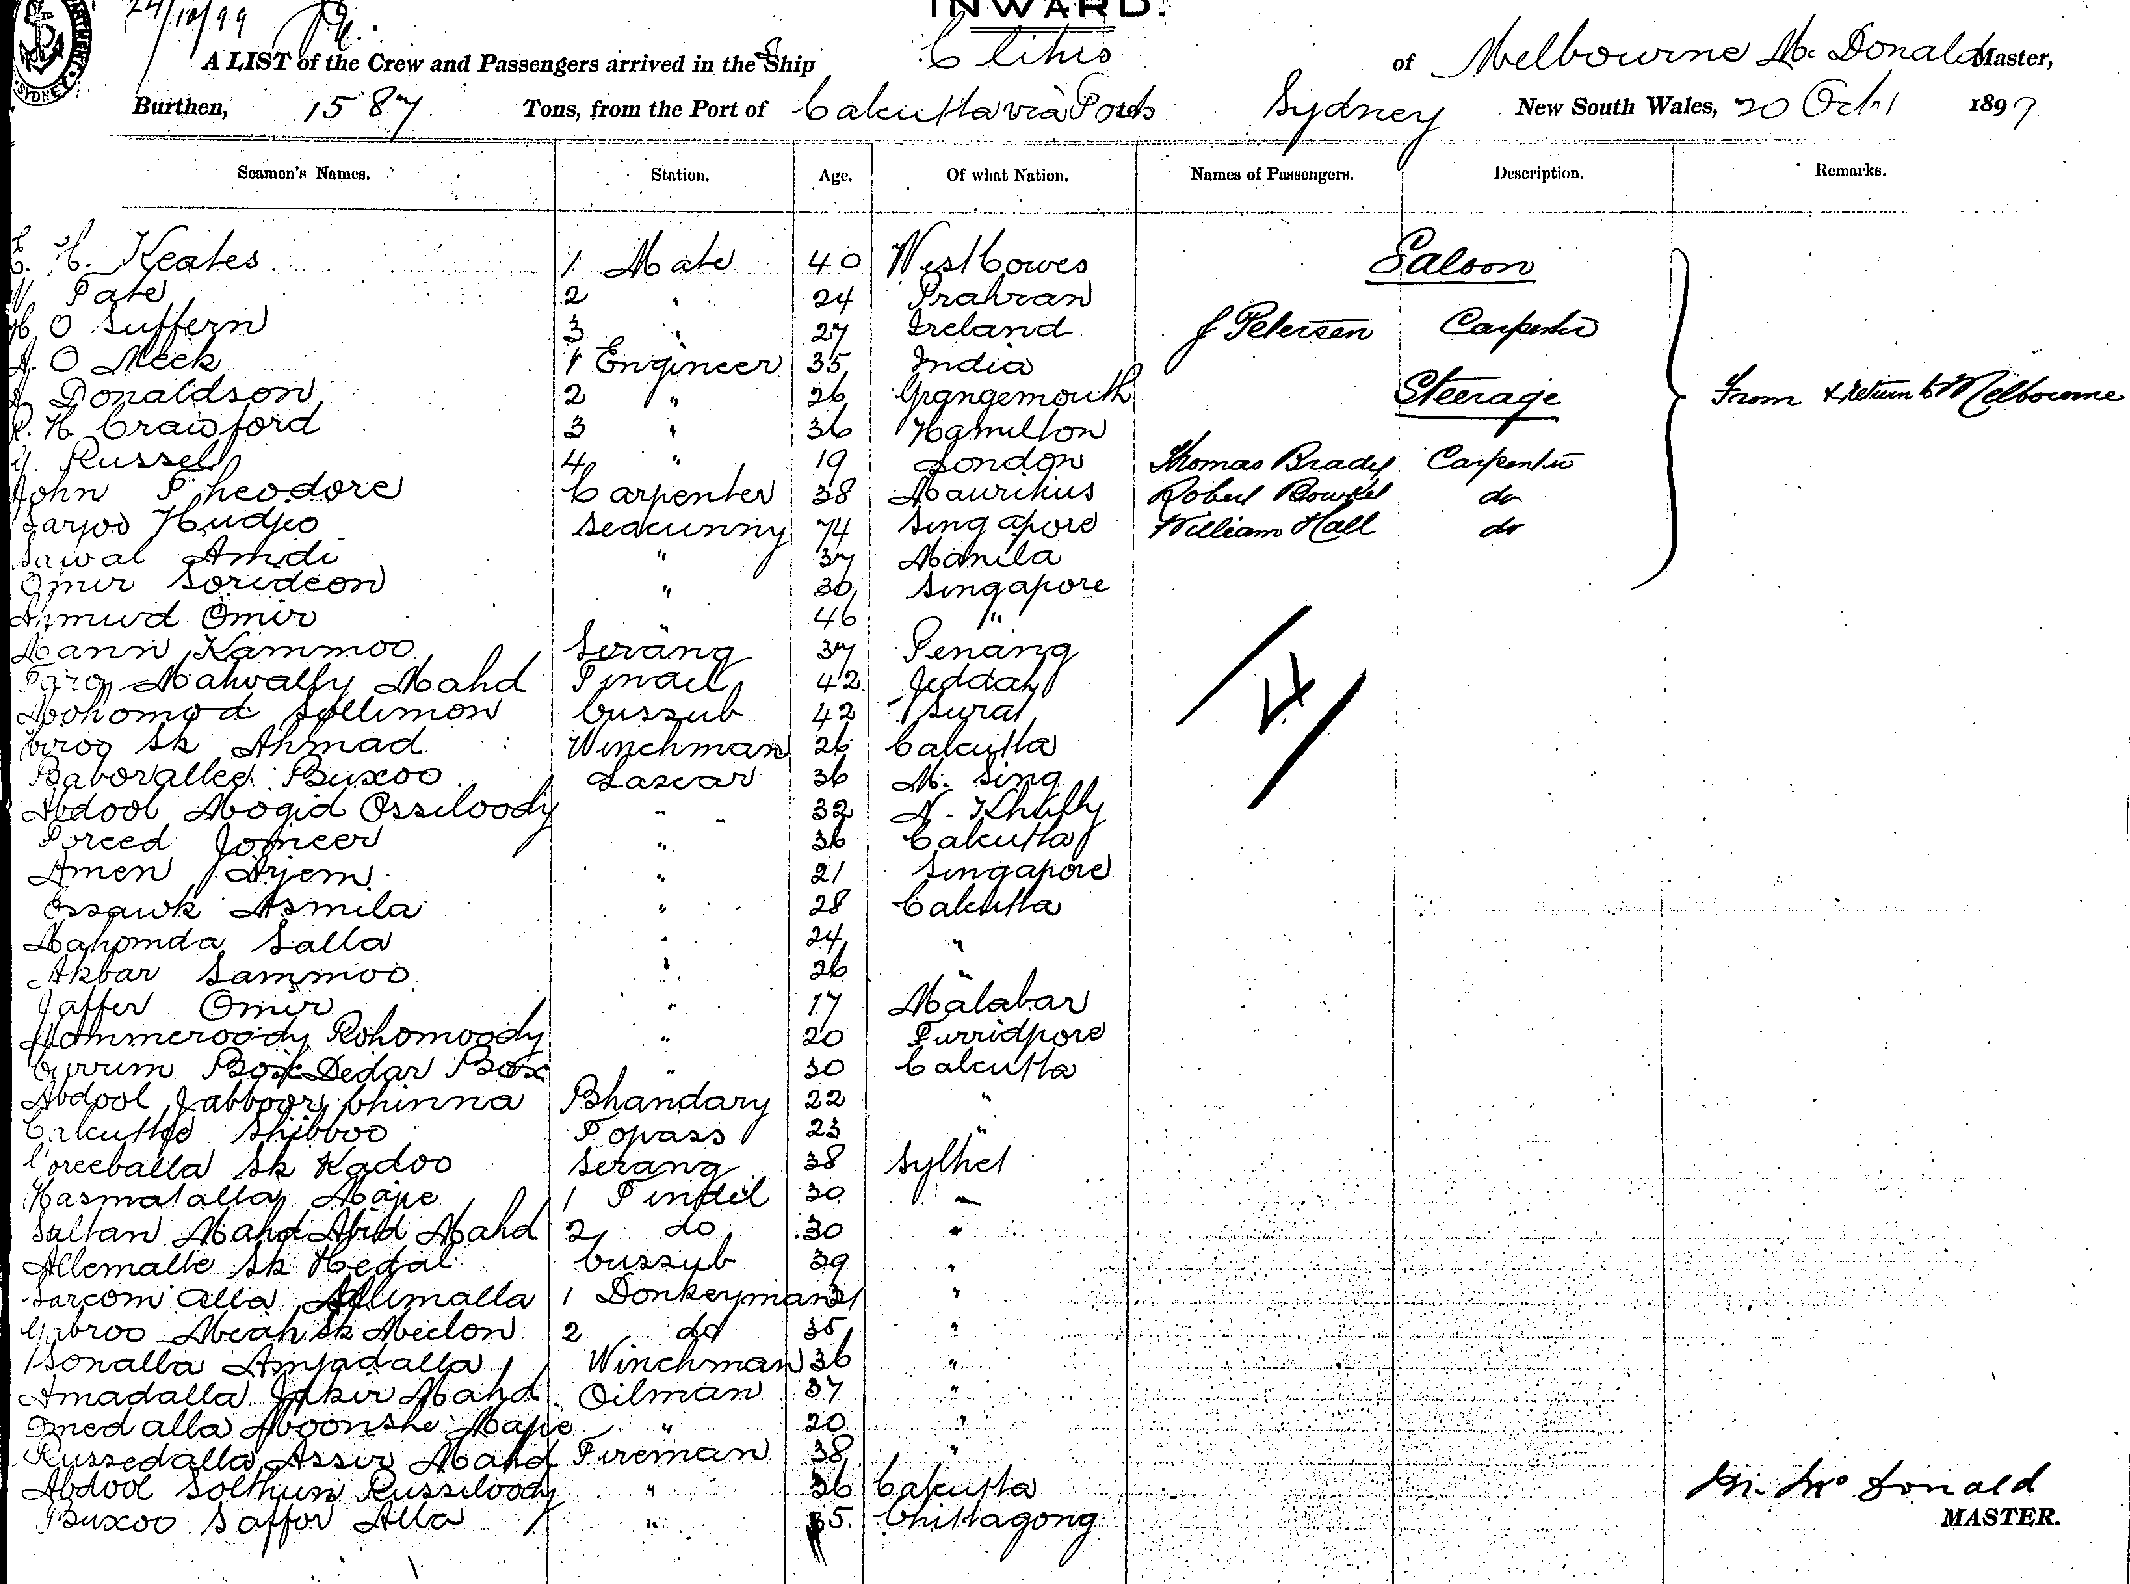 24/10/99
INWARD.
A LIST of the Crew and Passengers arrived in the Ship Clitus of Melbourne Mc Donald Master,
Burthen, 1587 Tons, from the Port of Calcutta via Ports Sydney New South Wales, 20 Oct 1897
Seamen's Names. Station. Age. Of what Nation. Names of Passengers. Description. Remarks.
H. Keates 1 Mate 40 West Cowes Saloon
Pate 2 " 24 Prahran
O Suffern 3 " 27 Ireland J Petersen Carpenter
O Meek 1 Engineer 35 India
Donaldson 2 " 26 Grangemouth Steerage From & return to Melbourne
R. H Crawford 3 " 36 Hamilton
Russel 4 " 19 London Thomas Brady Carpenter
John Theodore Carpenter 38 Mauritius Robert do
Sarjoo Hudjio Seacunny 74 Singapore William Hall do
Sawal Amdi " 37 Manila
Omir Sorideon " 30 Singapore
Ahmud Omir " 46 "
Mann Kammoo Serang 37 Penang
Mahd Tindil 42 Jeddah
Mohomod Sollimon Cussub 42 Surat
Sk Ahmad Winchman 26 Calcutta
Baborallee Buxoo Lascar 36 M. Sing
Abdool Mogid Ossiloody " 32 N.
Foreed Jomeer " 36 Calcutta
Amen Ajem " 21 Singapore
Essawk Asmila " 28 Calcutta
Mahomda Salla " 24 "
Akbar Sammoo " 26 "
Jaffer Omir " 17 Malabar
Rohomoody " 20 Furridpore
Currum Box Dedar Box " 30 Calcutta
Abdool Jabboor Chinna Bhandary 22 "
Calcuttee Shibboo Topass 23 "
Sk Kadoo Serang 38 Sylhet
Hasmatalla Maje 1 Tindel 30 "
Sultan Mahd Abid Mahd 2 do 30 "
Allemalle Sk Hedal Cussub 39 "
Sarcom alla Allimalla 1 Donkeyman 31 "
Gabroo Meah Sk Meclon 2 do 35 "
Sonalla Amjadalla Winchman 36 "
Amadalla Jakir Mahd Oilman 37 "
Omed alla Moonshe Maje " 20 "
Russedalla Assir Mahd Fireman 38 "
Abdool Solthun Russiloody " 36 Calcutta
Buxoo Saffor Alla " 35 Chittagong
M. McDonald
MASTER.